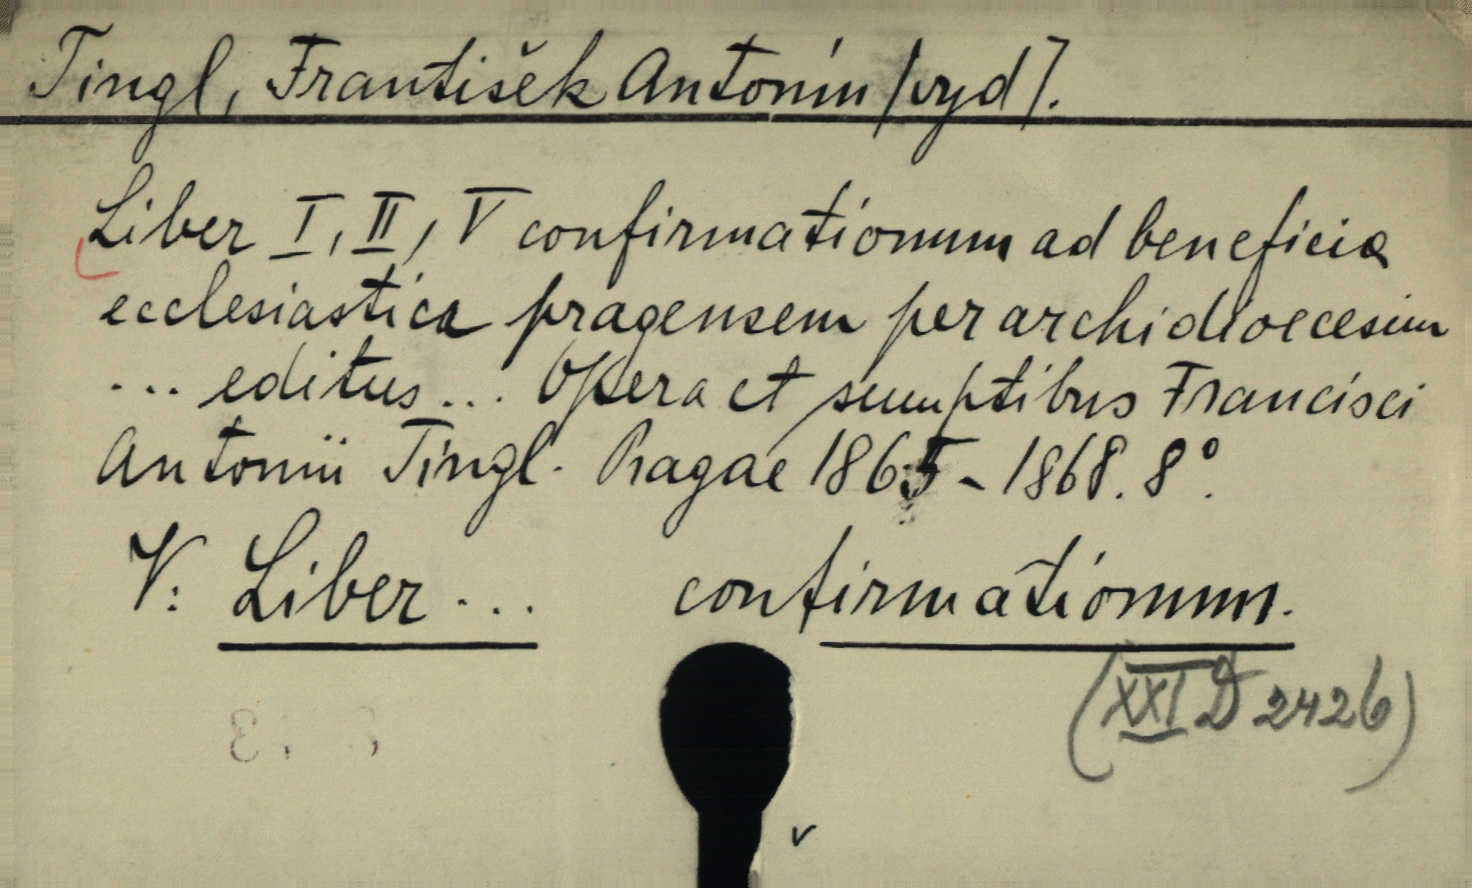 Tingl, František Antonín /vyd/.
Liber I, II, V confirmationum ad beneficia
ecclesiastica pragensem per archidioecesim
... editus... Opera et sumptibus Francisci
Antonii Tingl. Pragae 1865-1868. 8°.
V: Liber ... confirmationum.
(XXI D 2426)